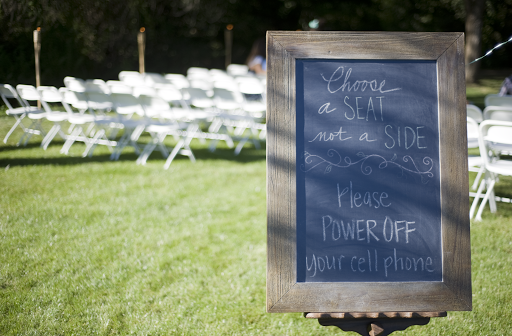 Choose
a SEAT
not a SIDE
Please
POWER OFF
your cell phone